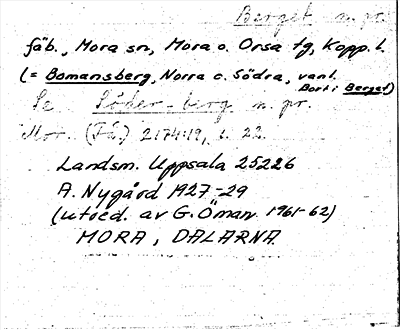 Berget n. pr.
fäb., Mora sn, Mora o. Orsa tg, Kopp. l.
(= Bomansberg, Norra o. Södra, vanl.
Bort i Berget)
Se Söder-berg n. pr.
Mor. (Få.) 2174:19, s. 22.
Landsm. Uppsala 25226
A. Nygård 1927-29
(utved. av G. Öman 1961-62)
MORA, DALARNA.